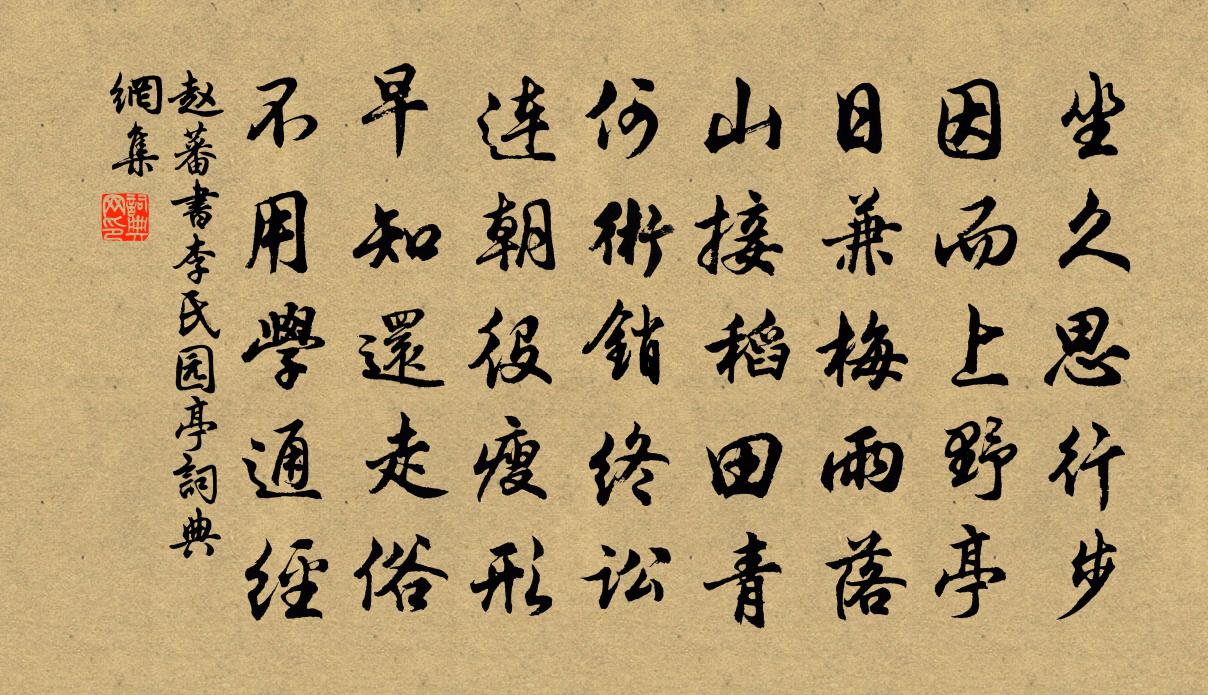 坐久思行步
因而上野亭
日兼梅雨落
山接稻田青
何術銷終訟
連朝役瘦形
早知還走俗
不用學通經
赵蕃書李民园亭詞典
網集
詞典
网印